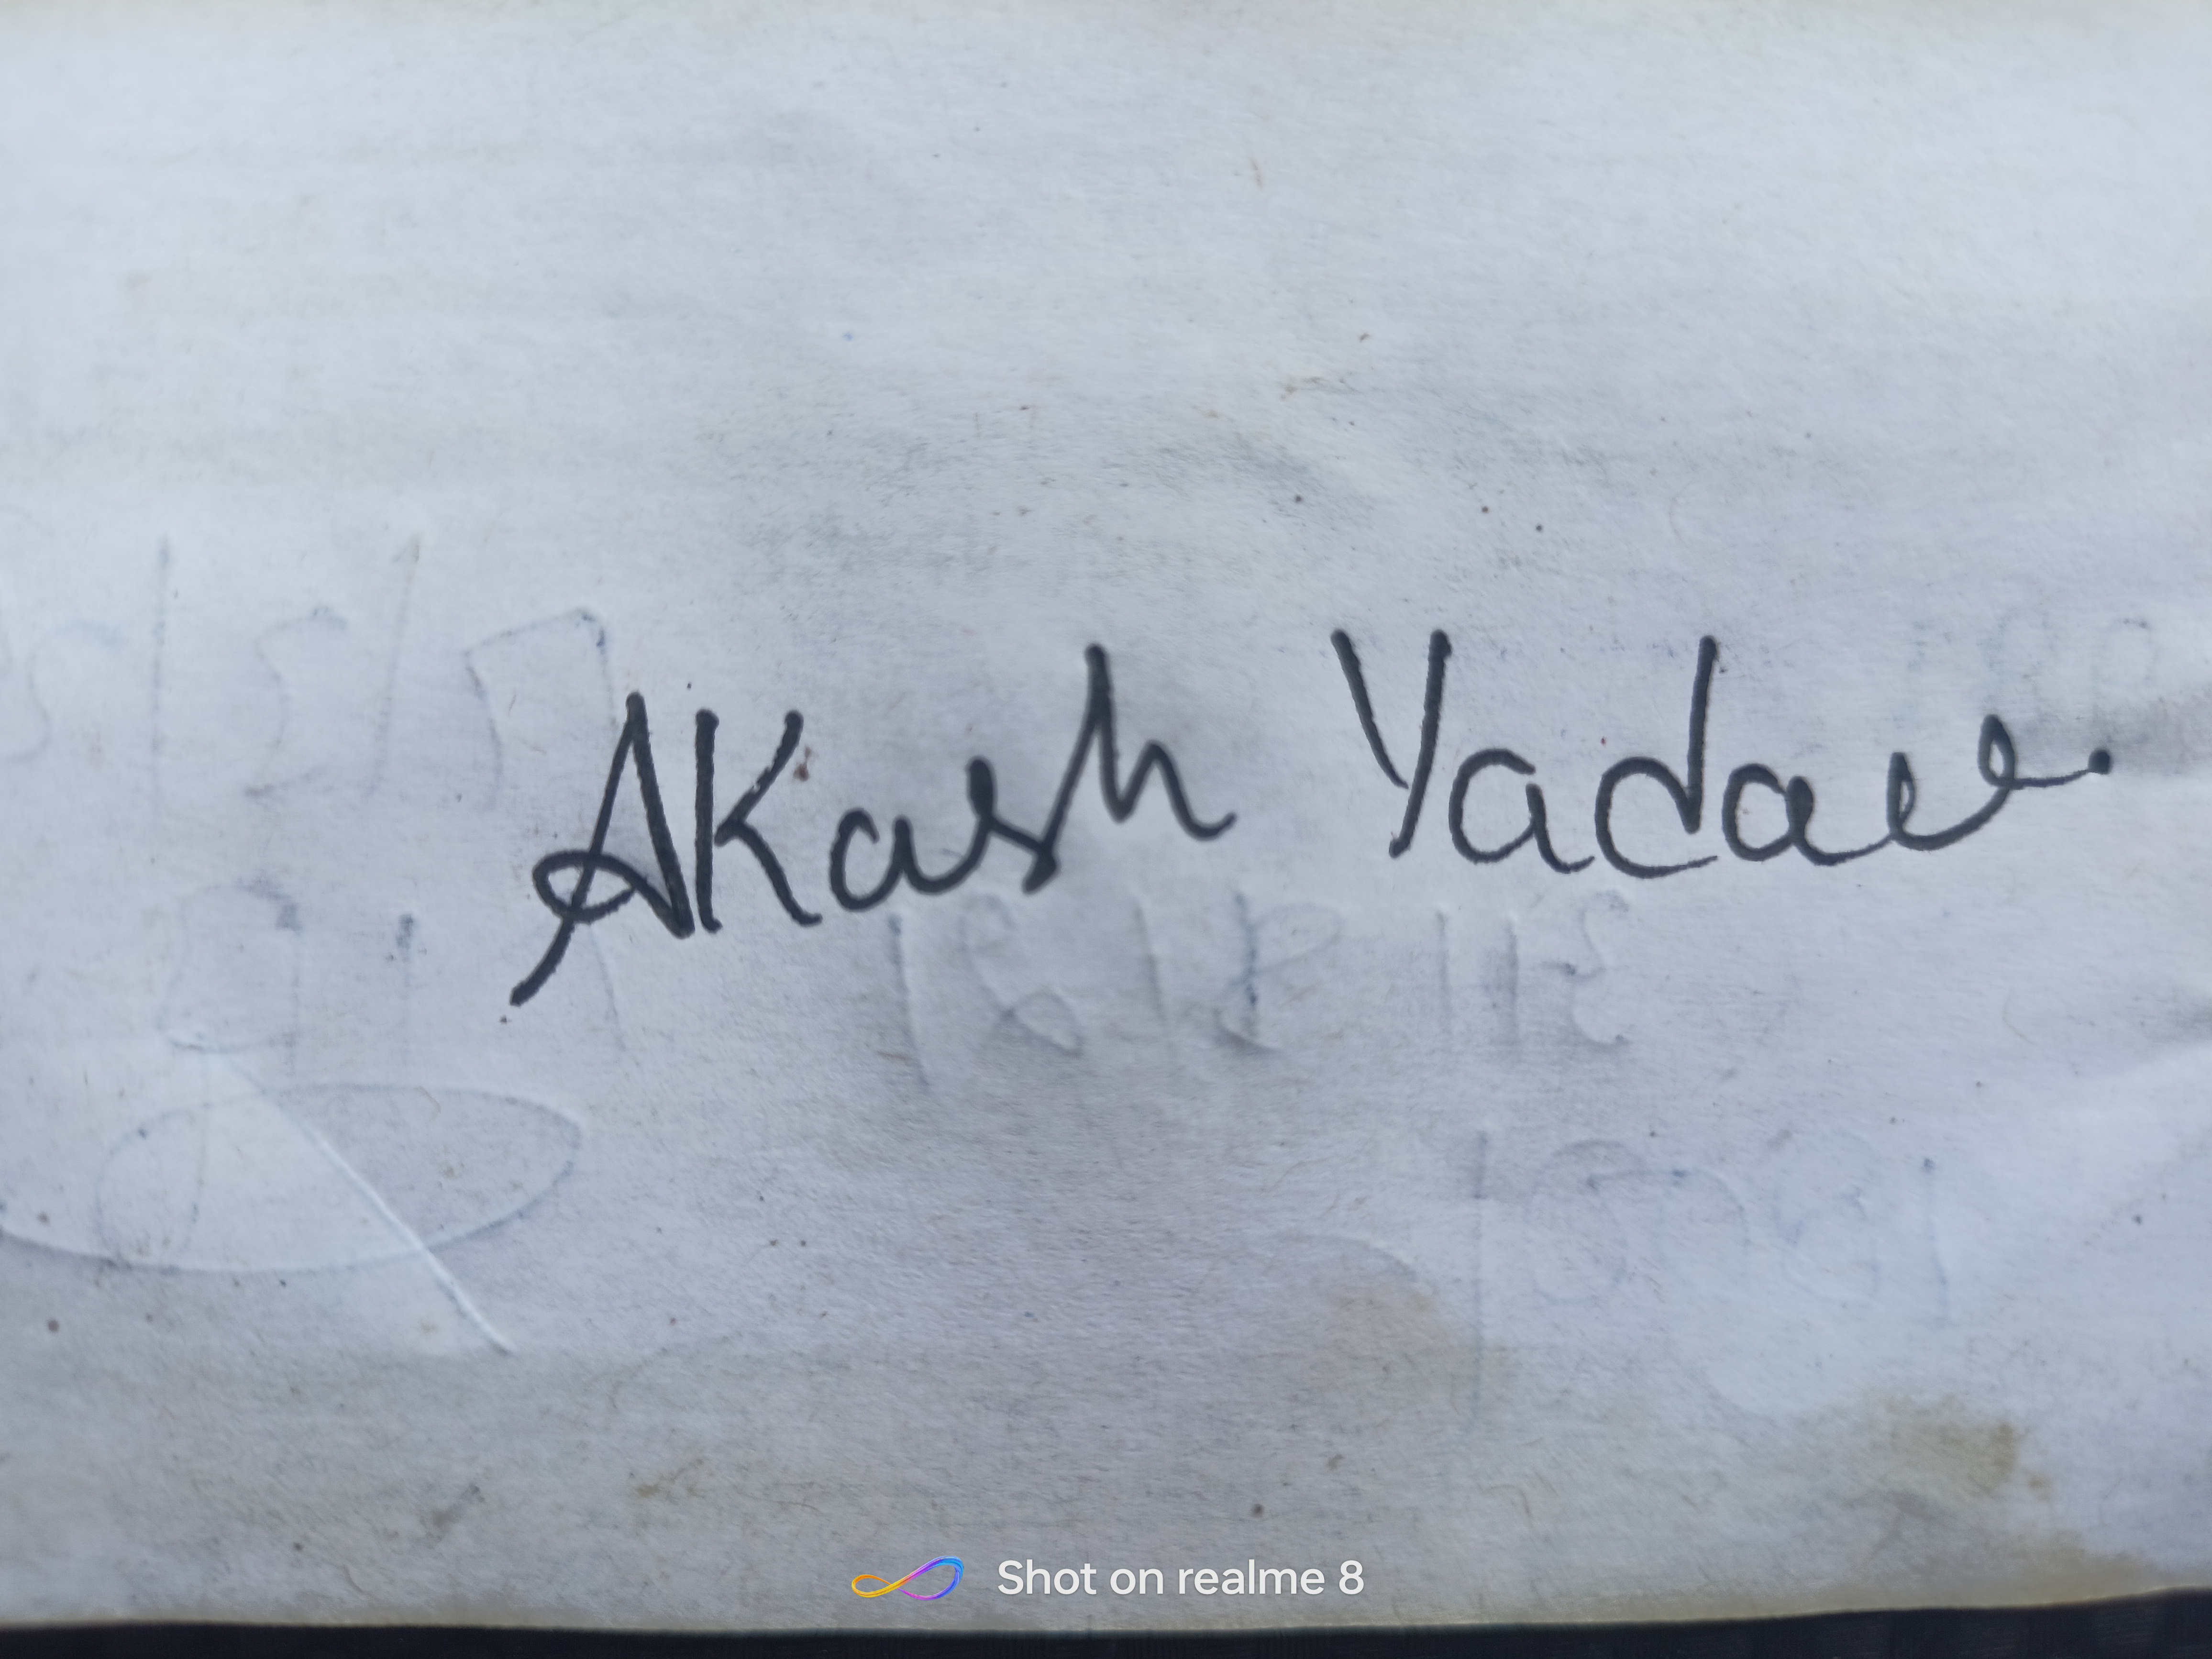 AKash Yadav.
Shot on realme 8